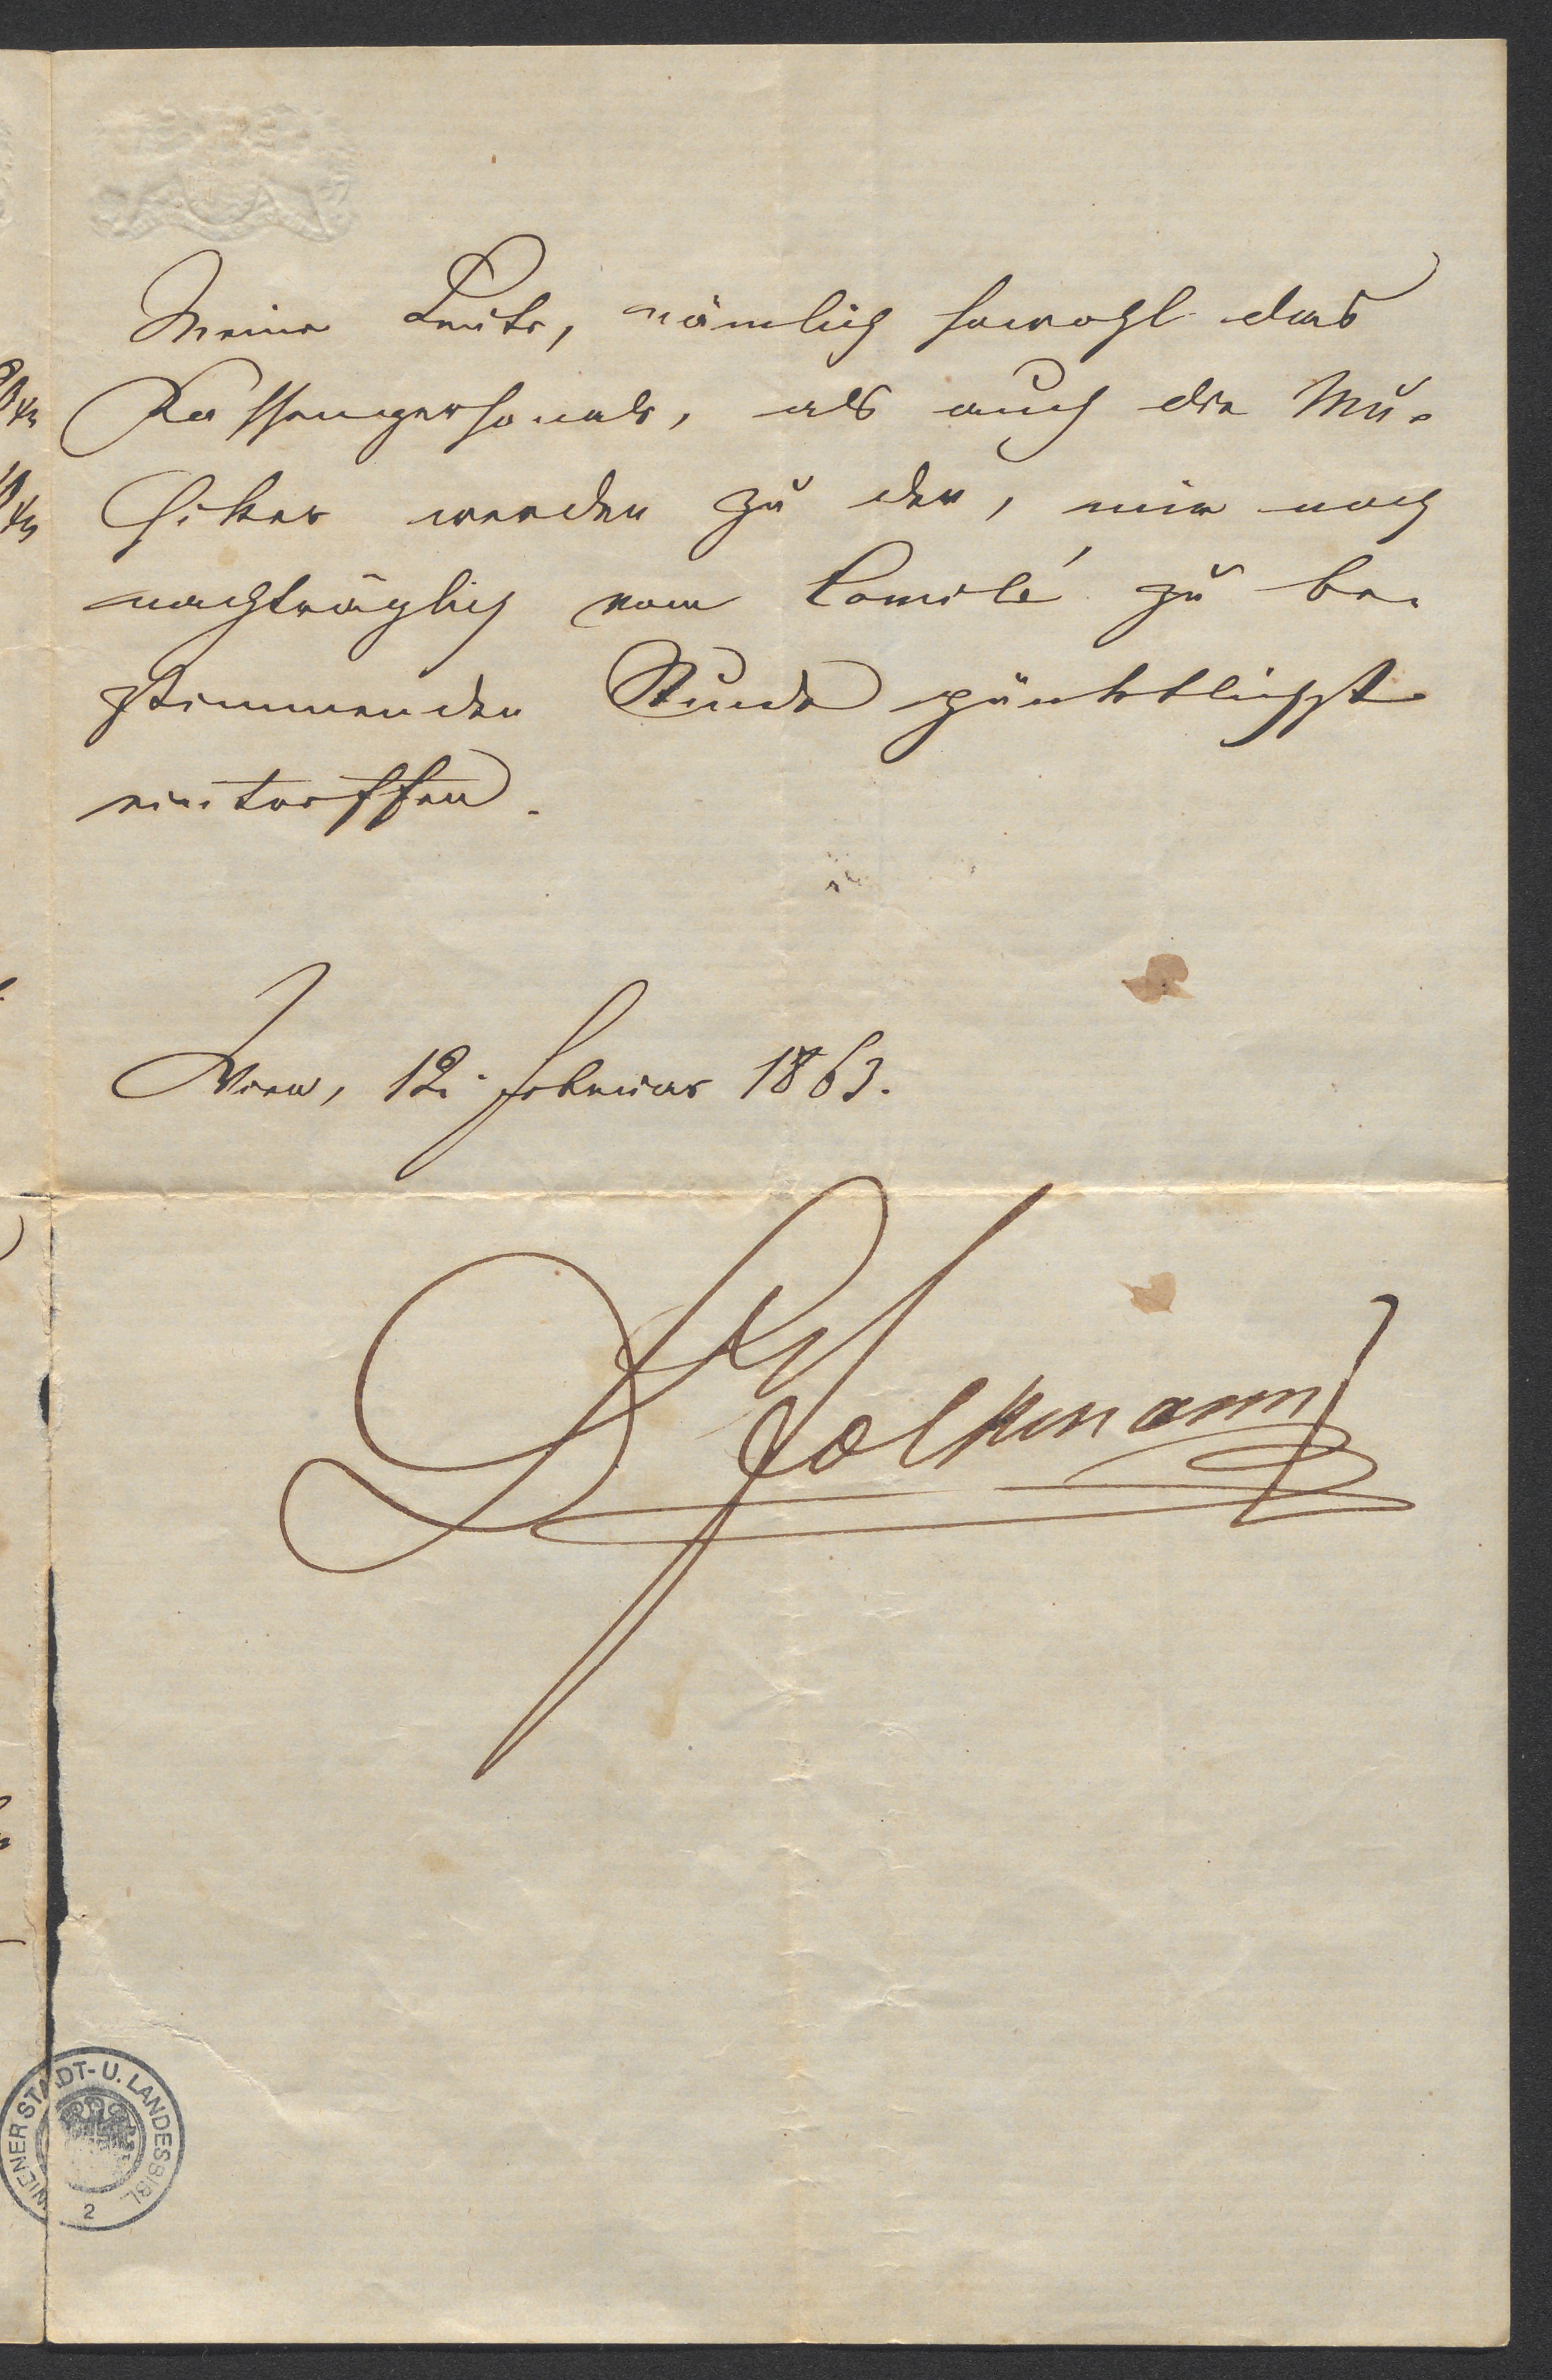 Meine Leute, nämlich sowohl das
Kassenpersonale, als auch die Mu-
siker werden zu der, mir noch
nachträglich vom Comité zu be-
stimmenden Stunde pünktlichst
eintreffen.
Wien, 12. Februar 1863.
WIENER STADT- U. LANDESBIBL.
2